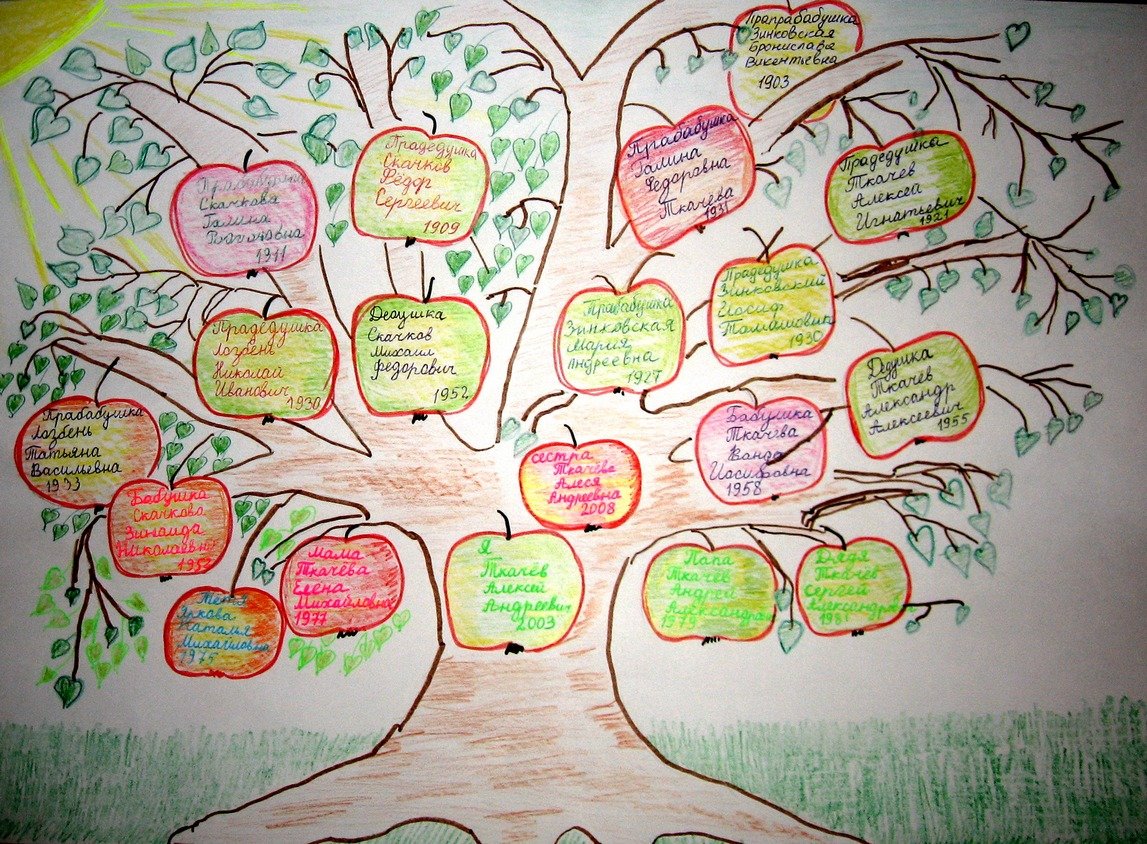 Прапрабабушка
Зинковская
Бронислава
Викентьевна
1903
Прабабушка
Скачкова
Галина
1911
Прадедушка
Скачков
Фёдор
Сергеевич
1909
Прабабушка
Галина
Федоровна
Ткачева
1931
Прадедушка
Ткачев
Алексей
Игнатьевич
1921
Прадедушка
Лозбень
Николай
Иванович
1930
Дедушка
Скачков
Михаил
Федорович
1952
Прабабушка
Зинковская
Мария
Андреевна
1927
Прадедушка
Зинковский
Иосиф
1930
Дедушка
Ткачев
Александр
Алексеевич
1955
Прабабушка
Лозбень
Татьяна
Васильевна
1933
Бабушка
Скачкова
Зинаида
Николаевна
сестра
Ткачёва
Алеся
Андреевна
2008
Бабушка
Ткачёва
Ванда
Иосифовна
1958
Тётя
Наталья
Михайловна
1975
Мама
Ткачёва
Елена
Михайловна
1977
Я
Ткачёв
Алексей
Андреевич
2003
Папа
Ткачёв
Андрей
Александрович
1979
Дядя
Ткачёв
Сергей
Александрович
1981